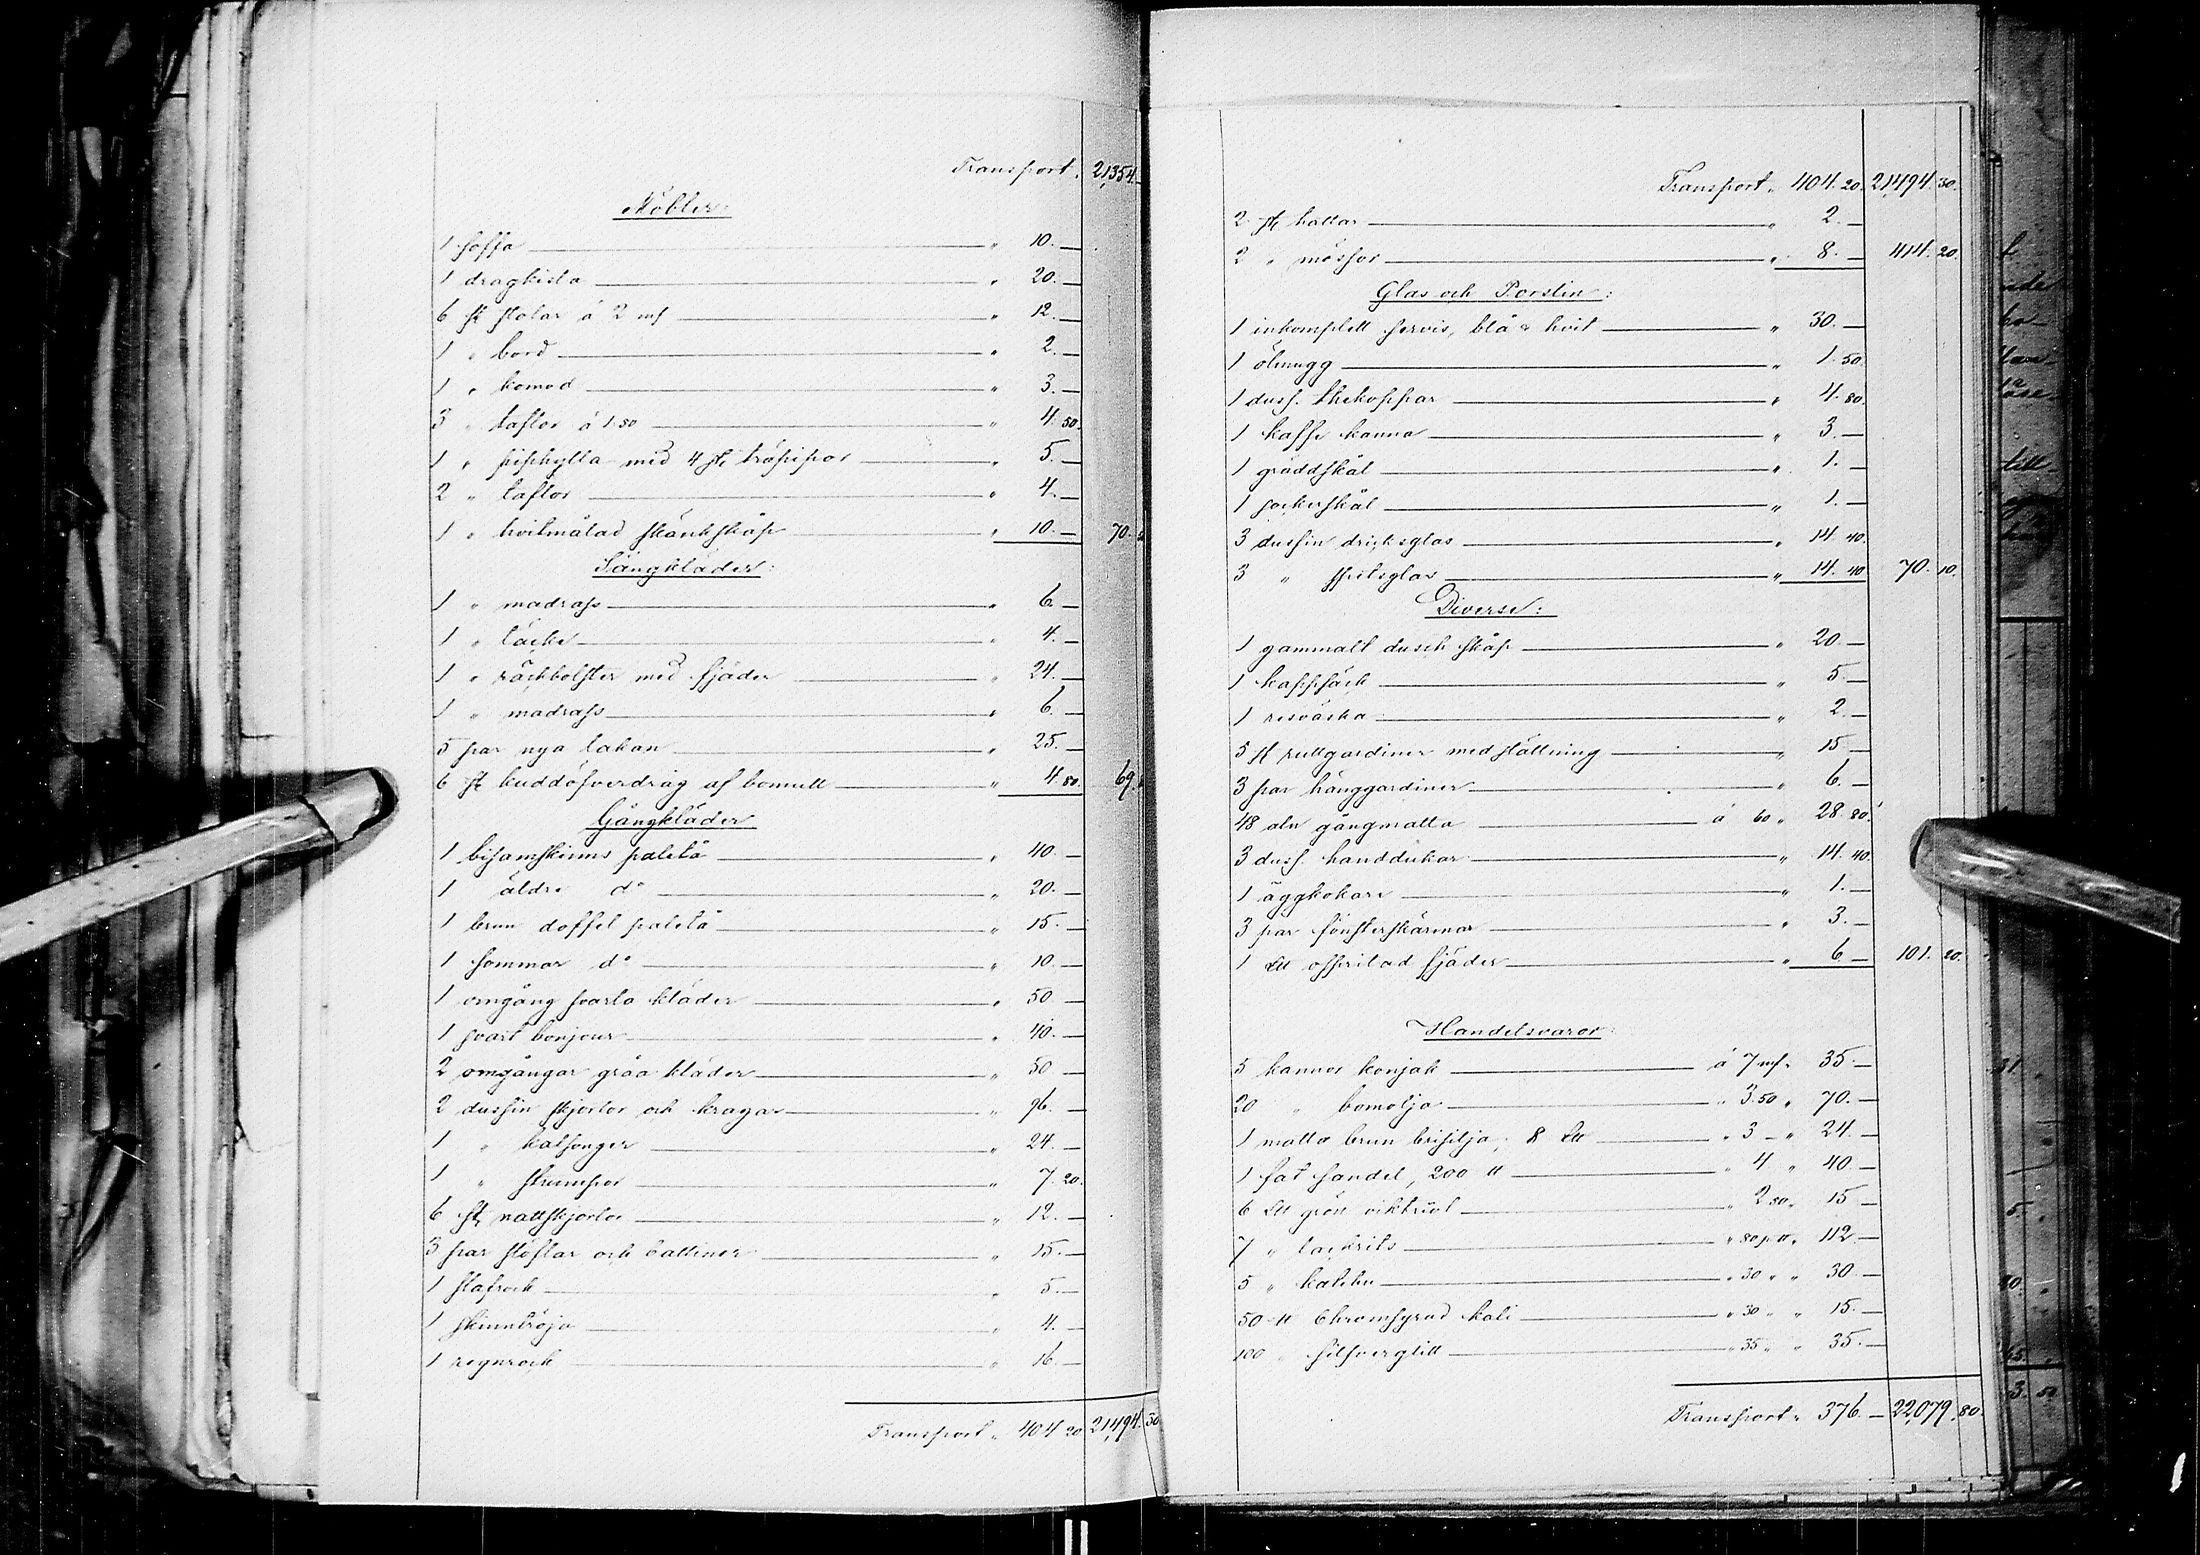 Transport. 21,354.—
Möbler:
1 soffa — " 10.—
1 dragkista — " 20.—
6 st stolar á 2 mf — " 12.—
1 " bord — " 2.—
1 " komod — " 3.—
3 " taflor á 1.50 — " 4.50.
1 " piphylla med 4 st. träpipor — " 5.—
2 " taflor — " 4.—
1 " hvitmålad skänkskåp — " 10.— 70.
Sängkläder:
1 " madrass — " 6.—
1 " täcke — " 4.—
1 " räckbolster med fjäder — " 24.—
1 " madrass — " 6.—
5 par nya lakan — " 25.—
6 st kuddöfverdrag af bomull — " 4.80. 69.
Gångkläder
1 bisamskinns paletå — " 40.—
1 äldre do — " 20.—
1 brun doffel paletå — " 15.—
1 sommar do — " 10.—
1 omgång svarta kläder — " 50.—
1 svart bonjour — " 40.—
2 omgångar gråa kläder — " 50.—
2 dussin skjortor och kragar — " 96.—
1 " kalsonger — " 24.—
1 " strumpor — " 7.20.
6 st nattskjortor — " 12.—
3 par stöflar och battiner — " 15.—
1 slafrock — " 5.—
1 skinntröja — " 4.—
1 regnrock — " 16.—
Transport " 404 20 21,494. 30
Transport " 404. 20. 21,494 30.
2 st hattar — " 2.—
2 " mössor — " 8.— 414. 20.
Glas och Porslin:
1 inkomplett servis, blå & hvit — " 30.—
1 ölmugg — " 1.50.
1 duss. thekoppar — " 4.80.
1 kaffe kanna — " 3.—
1 gräddskål — " 1.—
1 sockerskål — " 1.—
3 dussin dricksglas — " 14.40.
3 " spetsglas — " 14.40 70. 10.
Diverse:
1 gammalt dusch skåp — " 20.—
1 kappsäck — " 5.—
1 resväska — " 2.—
5 st rullgardiner med ställning — " 15.—
3 par hänggardiner — " 6.—
48 aln gångmatta — á 60 " 28.80.
3 duss. handdukar — " 14.40.
1 äggkokare — " 1.—
3 par fönsterskärmar — " 3.—
1 L℔ ospritad fjäder — " 6.— 101. 20.
Handelsvaror:
5 kannor konjak — á 7 mf " 35.—
20 " bomolja — " 3.50 " 70.—
1 matta brun brisilja, 8 L℔ — " 3 — " 24.—
1 fat sandel, 200 ℔ — " 4 " 40.—
6 L℔ grön viktriol — " 2.50 " 15.—
7 " lackrits — " 80 p. ℔ " 112.—
5 " katchu — " 30 " " 30.—
50 ℔ Chromsyrad kali — " 30 " " 15.—
100 " silfverglitt — " 35 " " 35.—
Transport " 376.— 22,079. 80.